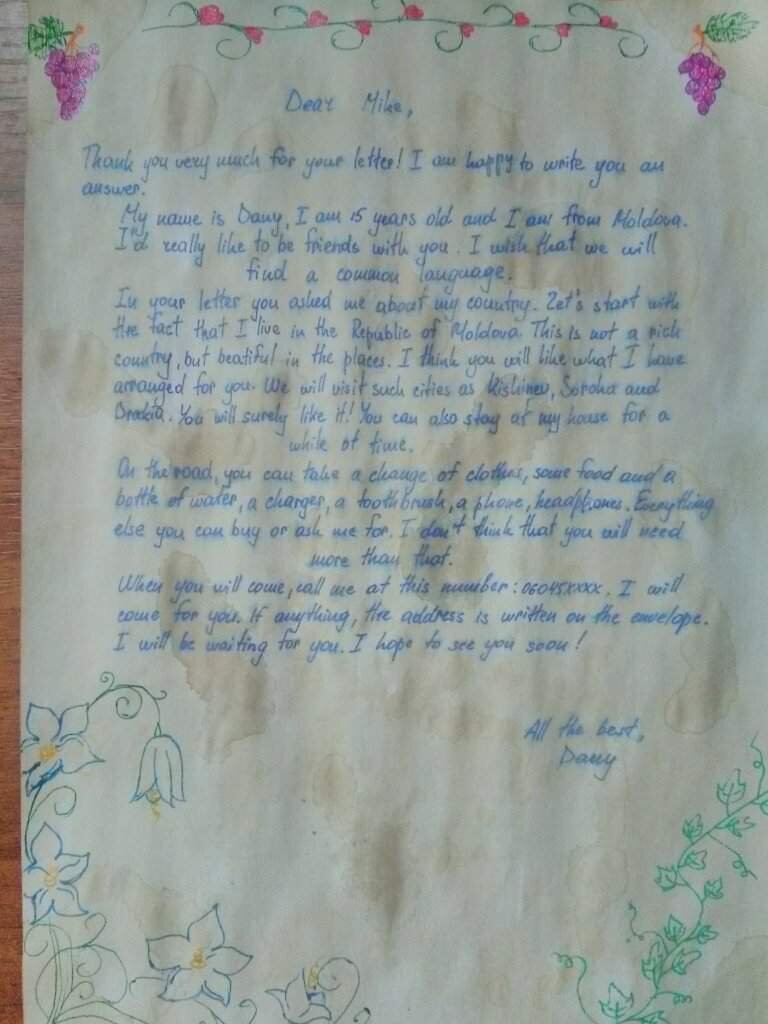 Dear Mike,
Thank you very much for your letter! I am happy to write you an
answer.
My name is Dany, I am 15 years old and I am from Moldova.
I'd really like to be friends with you. I wish that we will
find a common language.
In your letter you asked me about my country. Let's start with
the fact that I live in the Republic of Moldova. This is not a rich
country, but beatiful in the places. I think you will like what I have
arranged for you. We will visit such cities as Kishinev, Soroka and
Drokia. You will surely like it! You can also stay at my house for a
while of time.
On the road, you can take a change of clothes, some food and a
bottle of water, a charger, a toothbrush, a phone, headphones. Everything
else you can buy or ask me for. I don't think that you will need
more than that.
When you will come, call me at this number: 06045xxxx. I will
come for you. If anything, the address is written on the envelope.
I will be waiting for you. I hope to see you soon!
All the best,
Dany